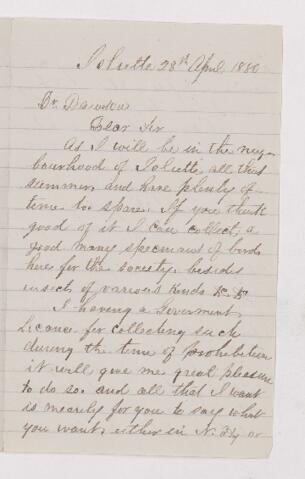 Joliette 28th April 1880
Dr. Dawson
Dear Sir
As I will be in the neig-
bourhood of Joliette all this
summer and have plenty of
time to spare. If you think
good of it I can collect a
good many specimens of birds
here for the society, besides
insects of various kinds &c &c
I having a Goverment
Licance for collecting such
during the time of prohibition
it will give me great pleasure
to do so. and all that I want
is mearly for you to say what
you want, either in N. Hy or